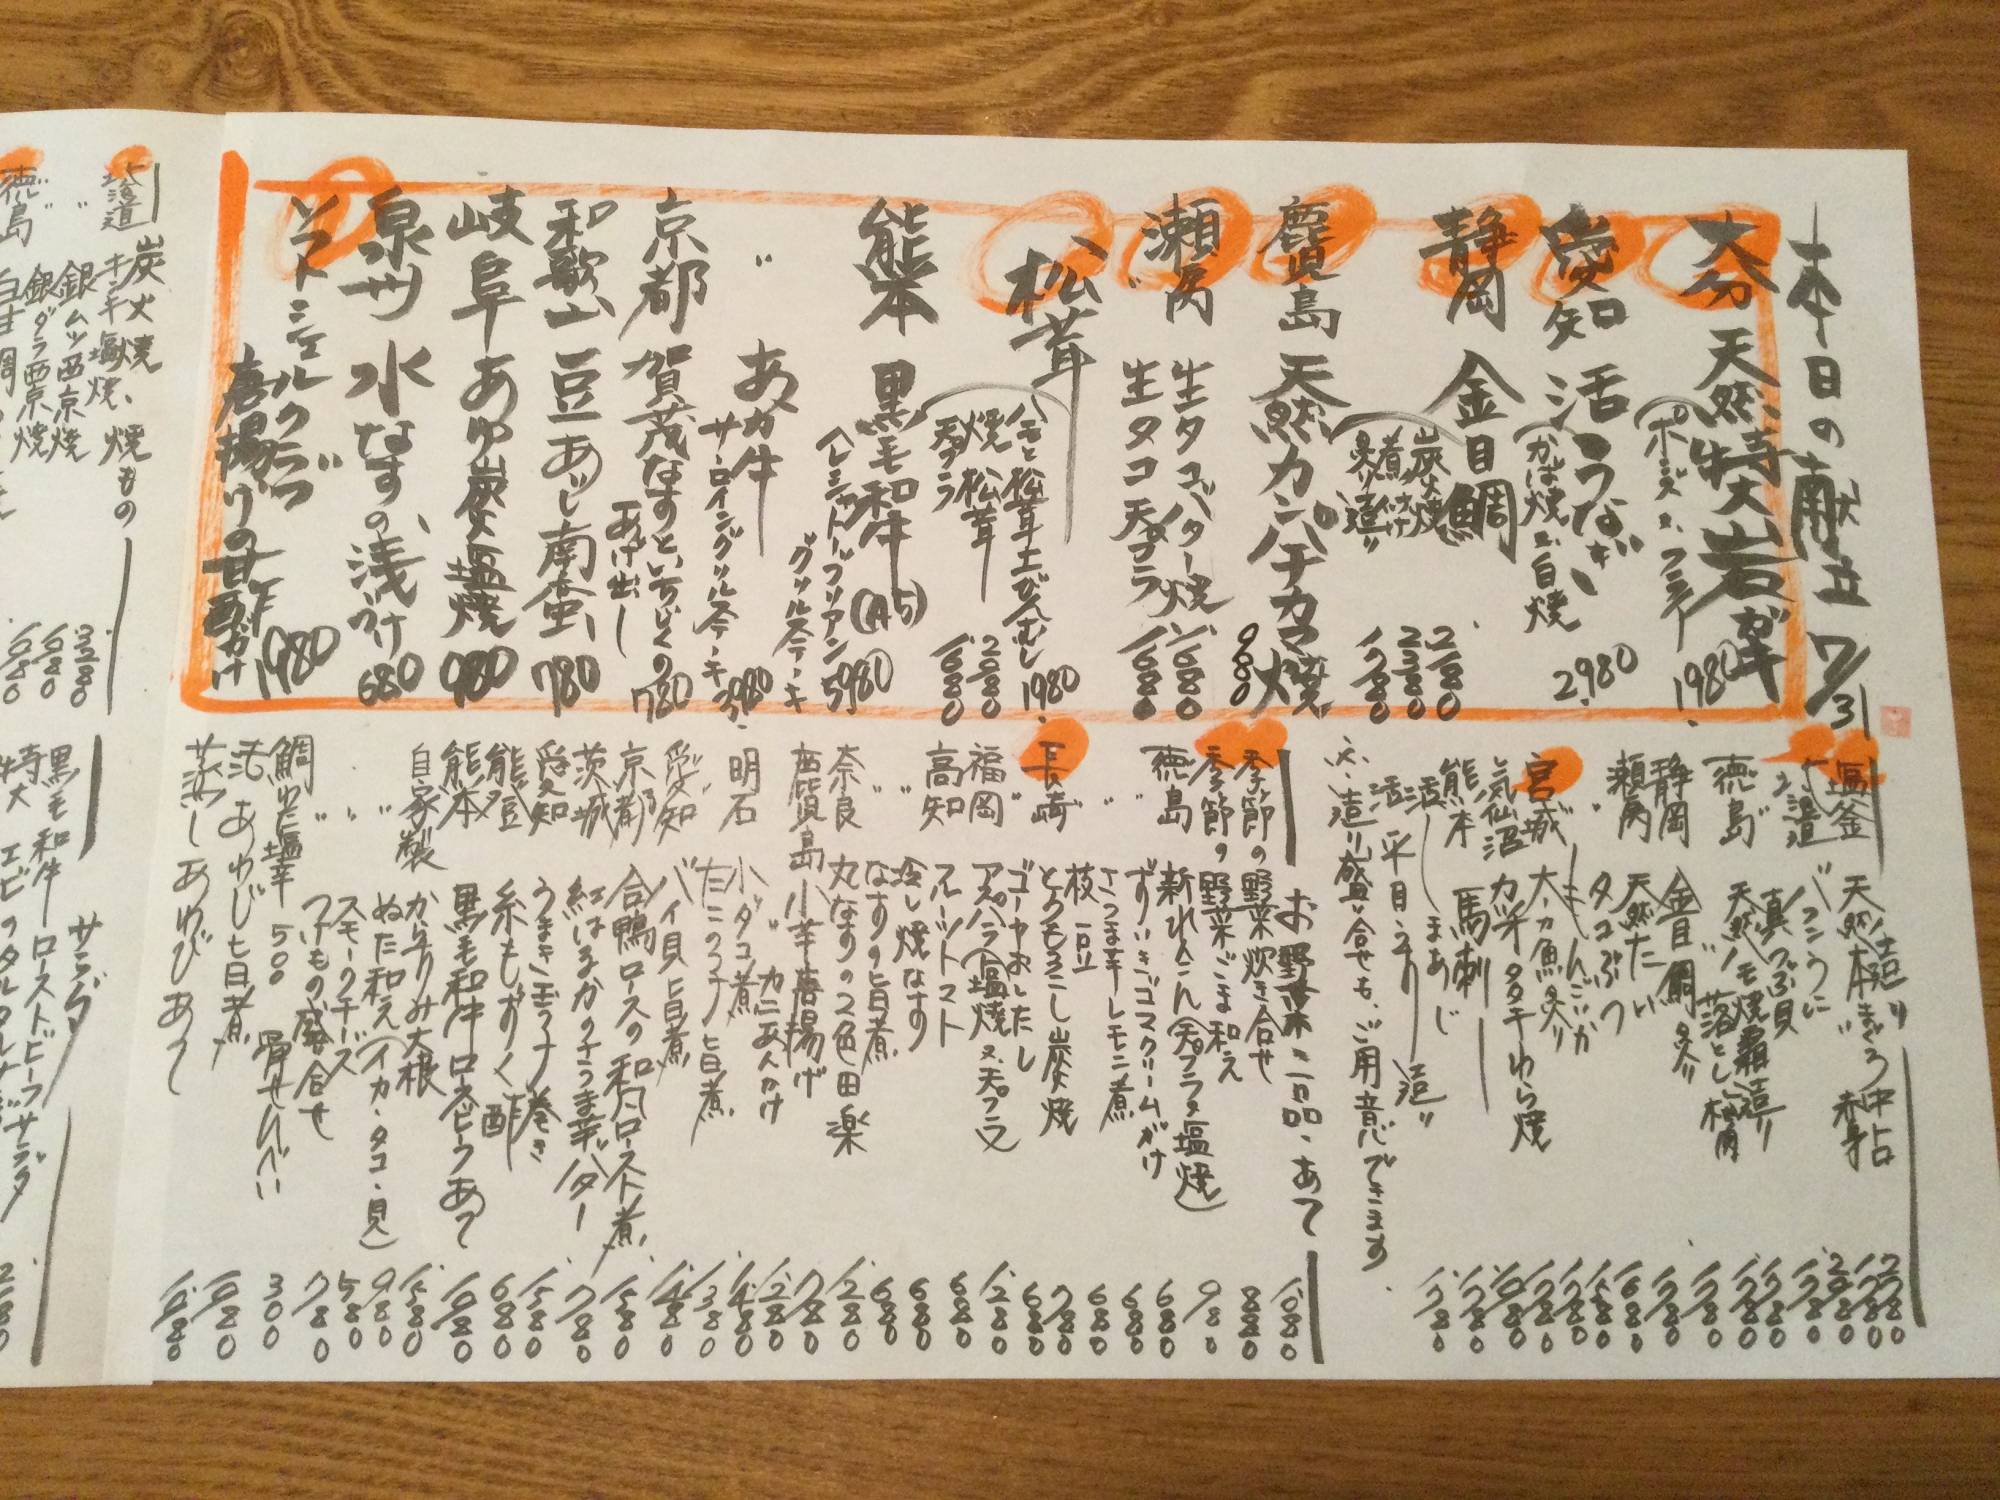 本日の献立 7/31
大分 天然特大岩ガキ 1980
(ポン又、フライ
愛知 活うなぎ、
(かば焼又、白焼 2980
静岡 金目鯛
炭火焼 2380
煮つけ 2380
炙り造り 1780
鹿児島 天然カンパチカマ焼 980
瀬戸内 生タコバター焼 1680
〃 生タコ 天プラ 1680
松茸
ハモと松茸土びんむし 1980
焼松茸 2080
天プラ 1680
熊本 黒毛和牛(A5)
(シャトーブリアン 5980
グリルステーキ
〃 あか牛
サーロイングリルステーキ 3980
京都 賀茂なすといちじくの
あげ出し 780
和歌山 豆あじ南蛮 780
岐阜 あゆ炭火塩焼 980
泉州 水なすの浅づけ 680
ソフトシェルクラブ
唐揚げの甘酢がけ 1980
塩釜 天然本まぐろ
中占 2780
赤身 1780
北海道 バフンうに 2080
〃 真つぶ貝 1780
徳島 天然ハモ焼霜造り 1780
〃 落とし梅肉 1780
静岡 金目鯛炙り 1780
瀬戸内 天然たい 1780
〃 タコぶつ 1680
もんごいか 1580
宮城 大トカ魚炙り 1280
気仙沼 カツオタタキわら焼 1080
熊本 馬刺 1780
活しまあじ
活平目・うすり 造り 1780
又、造り盛り合せも、ご用意できます
お野菜・一品・あて
季節の野菜炊き合せ 1080
季節の野菜ごま和え 880
徳島 新れんこん(天プラ又塩焼) 980
〃 ずいきゴマクリームがけ 680
〃 さつま芋レモン煮 680
枝豆 680
長崎 とうもろこし炭焼 780
〃 ゴーヤおしたし 680
福岡 アスパラ(塩焼又、天プラ) 1280
高知 フルーツトマト 680
〃 冷し焼なす 680
〃 なすの旨煮 680
奈良 丸なすの2色田楽 1280
鹿児島 小芋唐揚げ 780
〃 カニあんかけ 1280
明石 小ダコ煮 1480
〃 たこの子旨煮 1380
愛知 バイ貝旨煮 1480
京都 合鴨ロースの和風ロースト煮 1580
茨城 紅はるかのさつま芋バター 780
愛知 うまき玉子巻き 1580
能登 糸もずく酢 680
熊本 黒毛和牛ローストビーフあて 1080
自家製 からすみ大根 1580
〃 ぬた和え(イカ・タコ・貝) 980
〃 スモークチーズ 580
〃 つけもの盛合せ 780
鯛わた塩辛 500 骨せんべい 300
活 あわじ旨煮 1080
蒸しあわびあて 1080
炭火焼、焼もの
北海道 キンキ塩焼 3280
〃 銀ムツ西京焼 1680
〃 銀ダラ西京焼 1680
徳島
サラダ
黒毛和牛 ローストビーフサラダ
特大エビのタルタルサラダ 2180